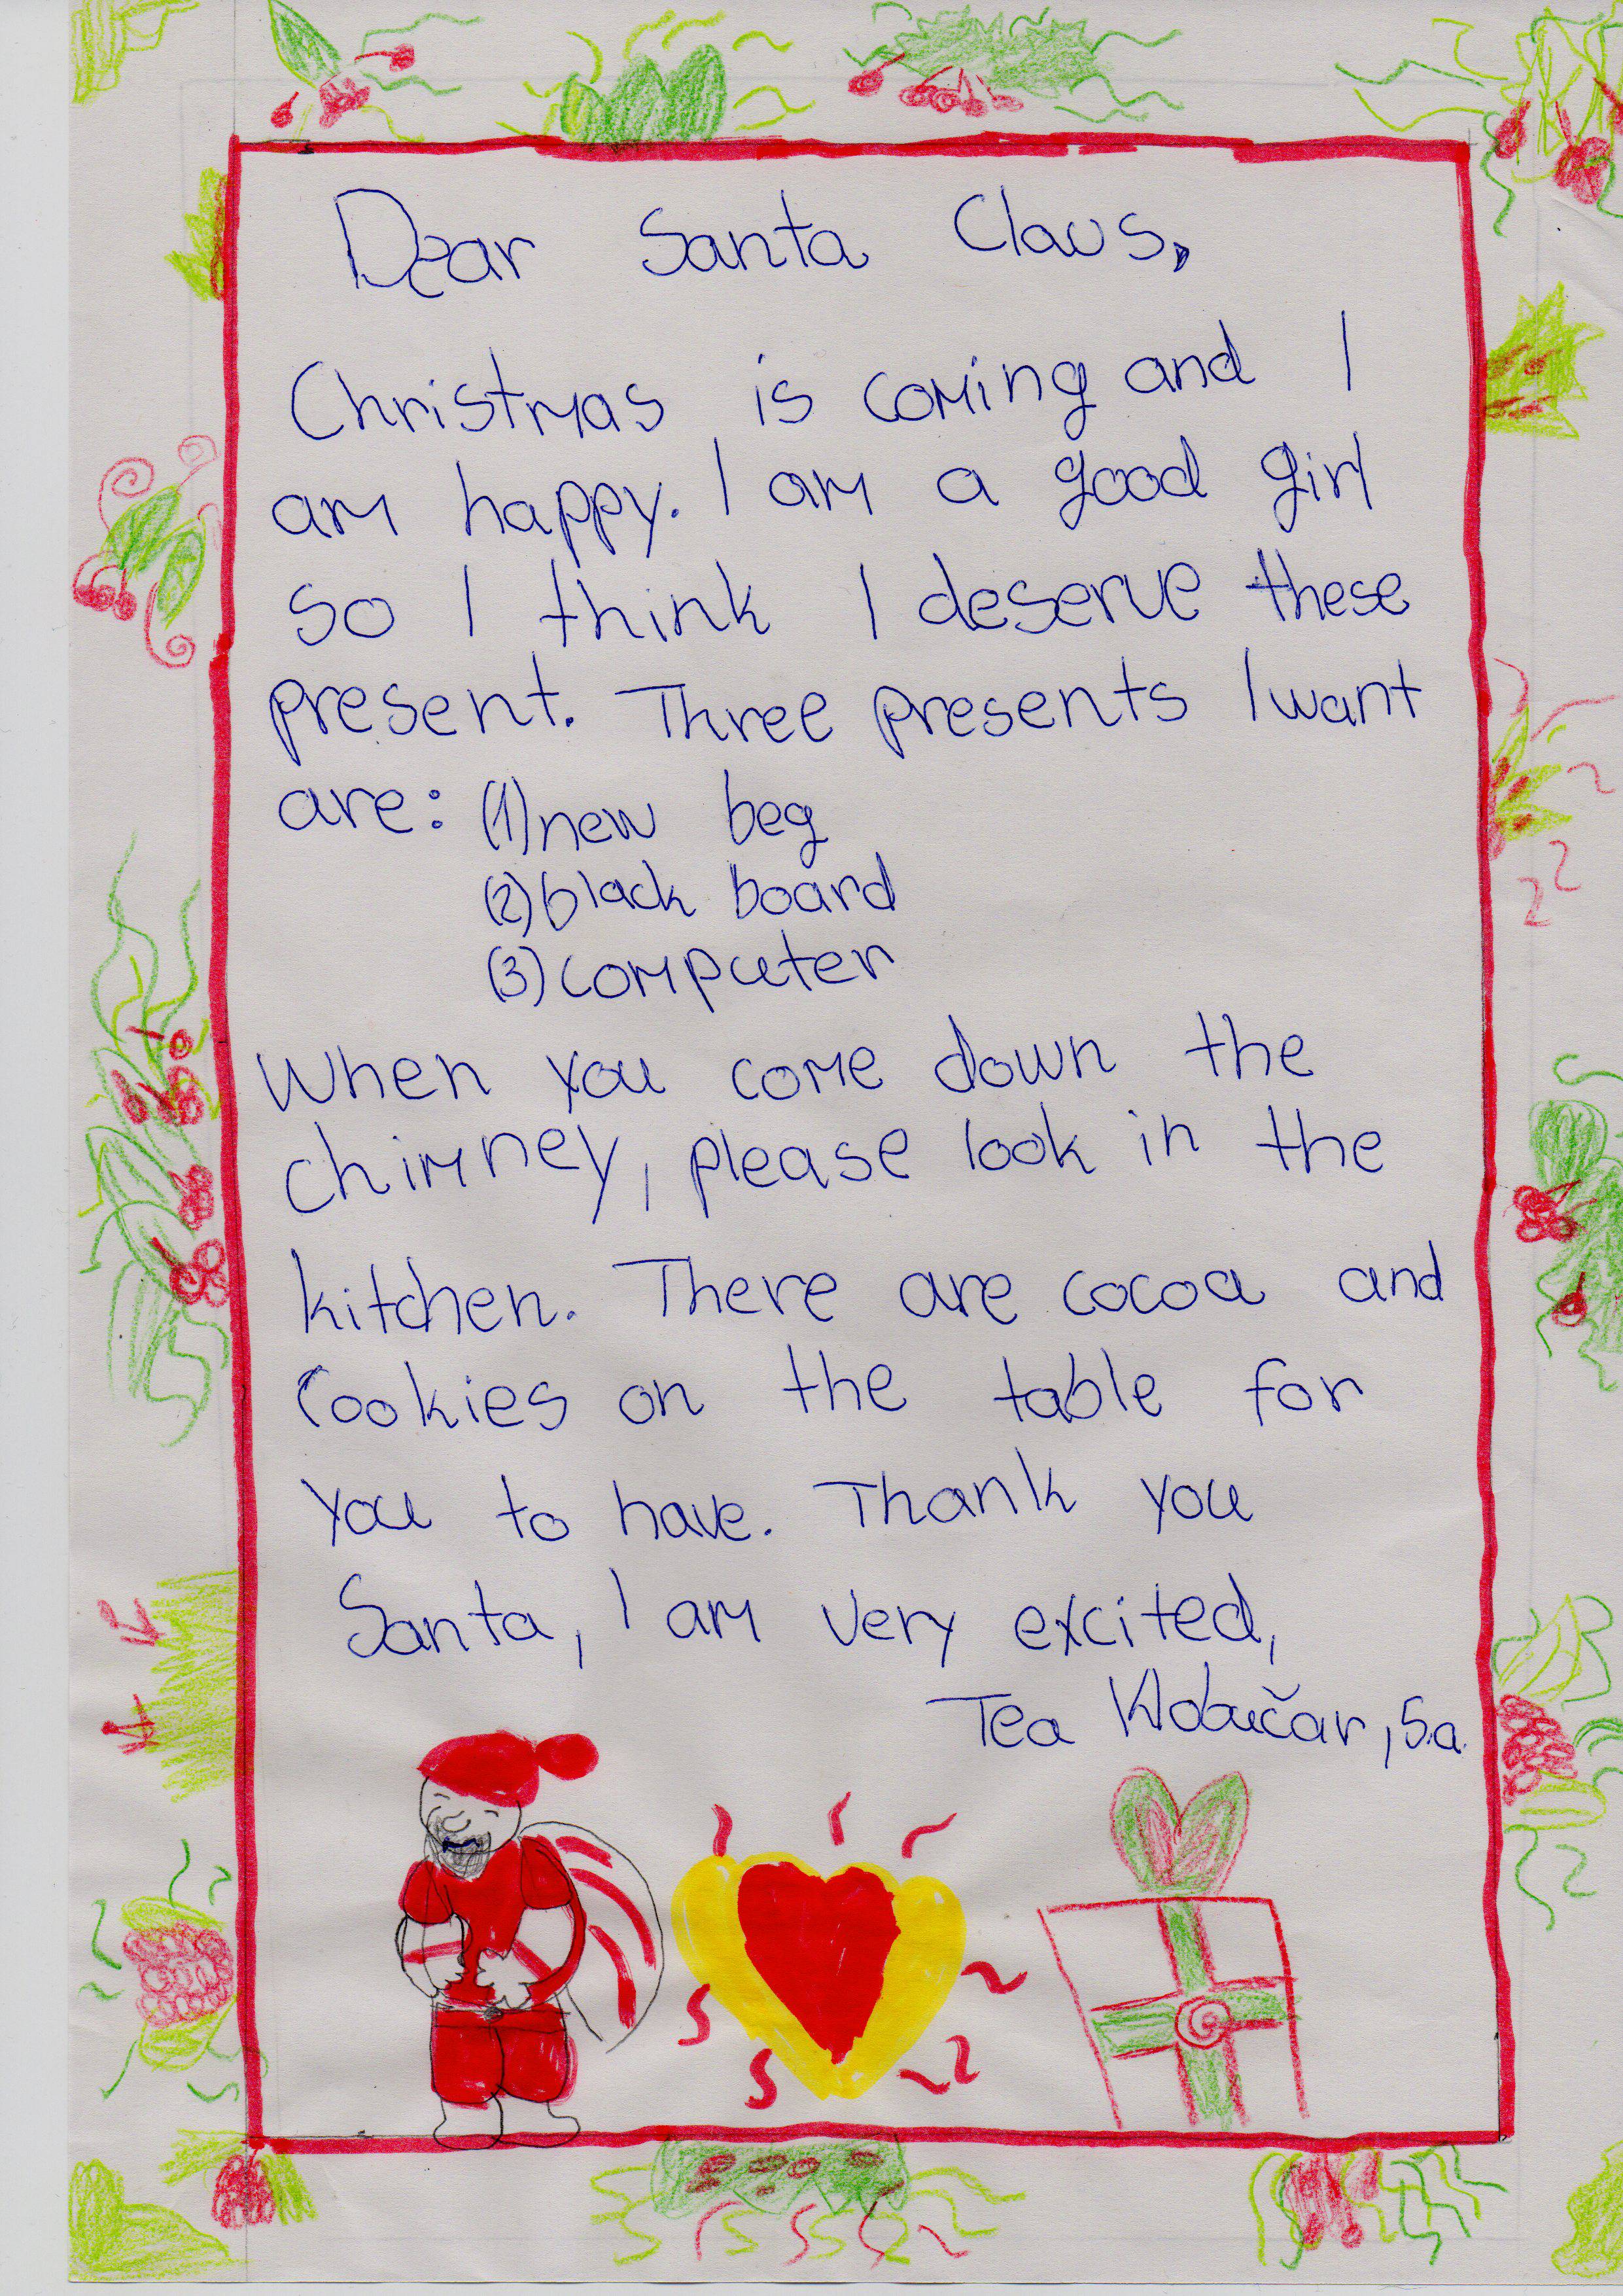 Dear Santa Claus,
Christmas is coming and I
am happy. I am a good girl
so I think I deserve these
present. Three presents I want
are: (1) new beg
(2) black board
(3) computer
When you come down the
chimney, please look in the
kitchen. There are cocoa and
cookies on the table for
you to have. Thank you
Santa, I am very excited,
Tea Klobučar, 5.a.